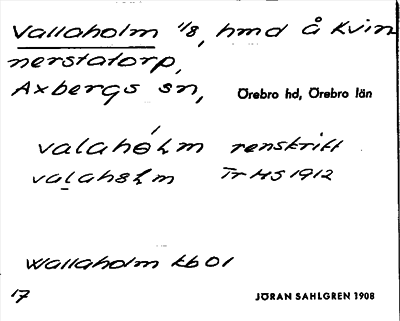 Vallaholm 1/8, hmd å Kvin
nerstatorp,
Axbergs sn, Örebro hd, Örebro län
valahólm renskrift
valahɵlm Tr HS 1912
Wallaholm kb 01
17 JÖRAN SAHLGREN 1908